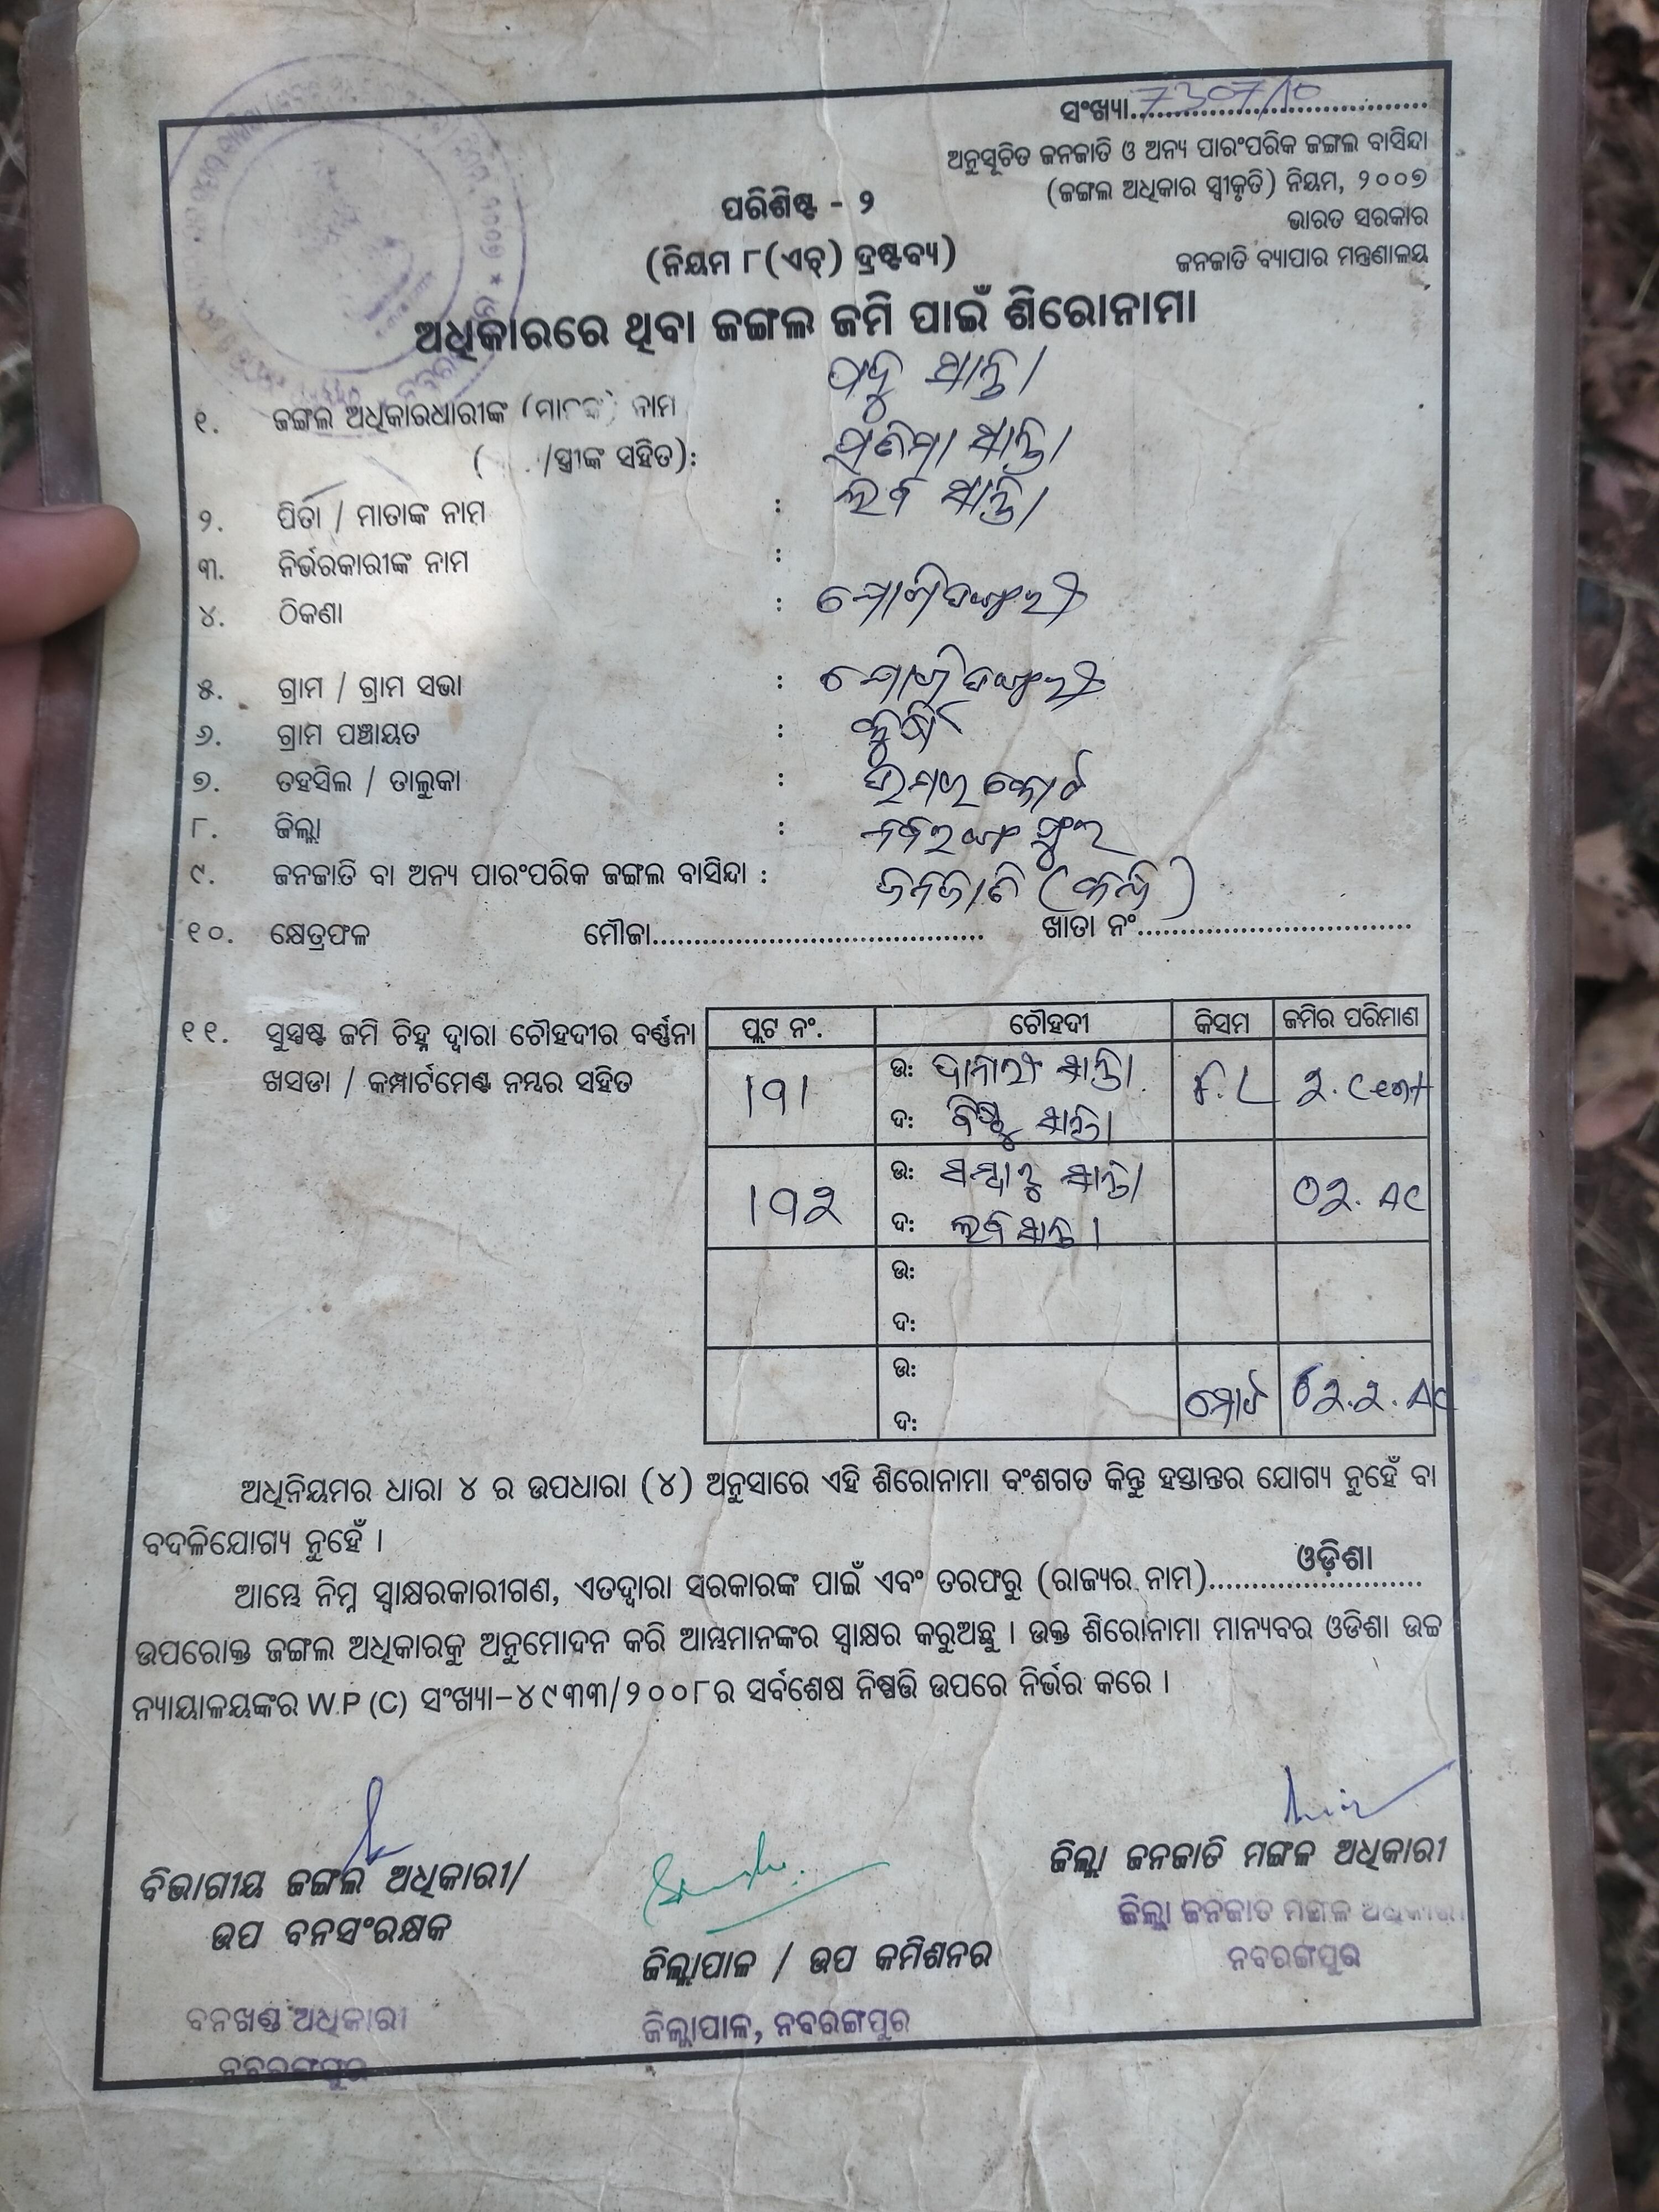 ସଂଖ୍ୟା 7307/10
ଅନୁସୂଚିତ ଜନଜାତି ଓ ଅନ୍ୟ ପାରଂପରିକ ଜଙ୍ଗଲ ବାସିନ୍ଦା
(ଜଙ୍ଗଲ ଅଧିକାର ସ୍ୱୀକୃତି) ନିୟମ, ୨୦୦୭
ଭାରତ ସରକାର
ଜନଜାତି ବ୍ୟାପାର ମନ୍ତ୍ରଣାଳୟ
ପରିଶିଷ୍ଟ - ୨
(ନିୟମ ୮(ଏଚ୍) ଦ୍ରଷ୍ଟବ୍ୟ)
ଅଧିକାରରେ ଥିବା ଜଙ୍ଗଲ ଜମି ପାଇଁ ଶିରୋନାମା
୧. ଜଙ୍ଗଲ ଅଧିକାରଧାରୀଙ୍କ ନାମ ସାନ୍ତା
( /ସ୍ତ୍ରୀଙ୍କ ସହିତ): ସାନ୍ତା
୨. ପିତା / ମାତାଙ୍କ ନାମ : ଲବ ସାନ୍ତା
୩. ନିର୍ଭରକାରୀଙ୍କ ନାମ :
୪. ଠିକଣା :
୫. ଗ୍ରାମ / ଗ୍ରାମ ସଭା :
୬. ଗ୍ରାମ ପଞ୍ଚାୟତ :
୭. ତହସିଲ / ତାଲୁକା : ଉମରକୋଟ
୮. ଜିଲ୍ଲା : ନବରଙ୍ଗପୁର
୯. ଜନଜାତି ବା ଅନ୍ୟ ପାରଂପରିକ ଜଙ୍ଗଲ ବାସିନ୍ଦା : ଜନଜାତି
୧୦. କ୍ଷେତ୍ରଫଳ ମୌଜା ଖାତା ନଂ
୧୧. ସୁସ୍ପଷ୍ଟ ଜମି ଚିହ୍ନ ଦ୍ୱାରା ଚୌହଦୀର ବର୍ଣ୍ଣନା
ଖସଡା / କମ୍ପାର୍ଟମେଣ୍ଟ ନମ୍ବର ସହିତ
ପ୍ଲଟ ନଂ. ଚୌହଦୀ କିସମ ଜମିର ପରିମାଣ
୧୭୧ ଉ: ସାନ୍ତା F.L ୨. Cent
ଦ: ବିଷ୍ଣୁ ସାନ୍ତା
୧୭୨ ଉ: ସାନ୍ତା ୦୨. AC
ଦ: ଲବ ସାନ୍ତା
ଉ:
ଦ:
ଉ:
ଦ: ମୋଟ ୦୨.୨. AC
ଅଧିନିୟମର ଧାରା ୪ ର ଉପଧାରା (୪) ଅନୁସାରେ ଏହି ଶିରୋନାମା ବଂଶଗତ କିନ୍ତୁ ହସ୍ତାନ୍ତର ଯୋଗ୍ୟ ନୁହେଁ ବା
ବଦଳିଯୋଗ୍ୟ ନୁହେଁ ।
ଆମ୍ଭେ ନିମ୍ନ ସ୍ୱାକ୍ଷରକାରୀଗଣ, ଏତଦ୍ୱାରା ସରକାରଙ୍କ ପାଇଁ ଏବଂ ତରଫରୁ (ରାଜ୍ୟର ନାମ) ଓଡ଼ିଶା
ଉପରୋକ୍ତ ଜଙ୍ଗଲ ଅଧିକାରକୁ ଅନୁମୋଦନ କରି ଆମ୍ଭମାନଙ୍କର ସ୍ୱାକ୍ଷର କରୁଅଛୁ । ଉକ୍ତ ଶିରୋନାମା ମାନ୍ୟବର ଓଡିଶା ଉଚ୍ଚ
ନ୍ୟାୟାଳୟଙ୍କର W.P (C) ସଂଖ୍ୟା-୪୯୩୩/୨୦୦୮ର ସର୍ବଶେଷ ନିଷ୍ପତ୍ତି ଉପରେ ନିର୍ଭର କରେ ।
ବିଭାଗୀୟ ଜଙ୍ଗଲ ଅଧିକାରୀ/
ଉପ ବନସଂରକ୍ଷକ
ବନଖଣ୍ଡ ଅଧିକାରୀ
ନବରଙ୍ଗପୁର
ଜିଲ୍ଲାପାଳ / ଉପ କମିଶନର
ଜିଲ୍ଲାପାଳ, ନବରଙ୍ଗପୁର
ଜିଲ୍ଲା ଜନଜାତି ମଙ୍ଗଳ ଅଧିକାରୀ
ଜିଲ୍ଲା ଜନଜାତି ମଙ୍ଗଳ ଅଧିକାରୀ
ନବରଙ୍ଗପୁର